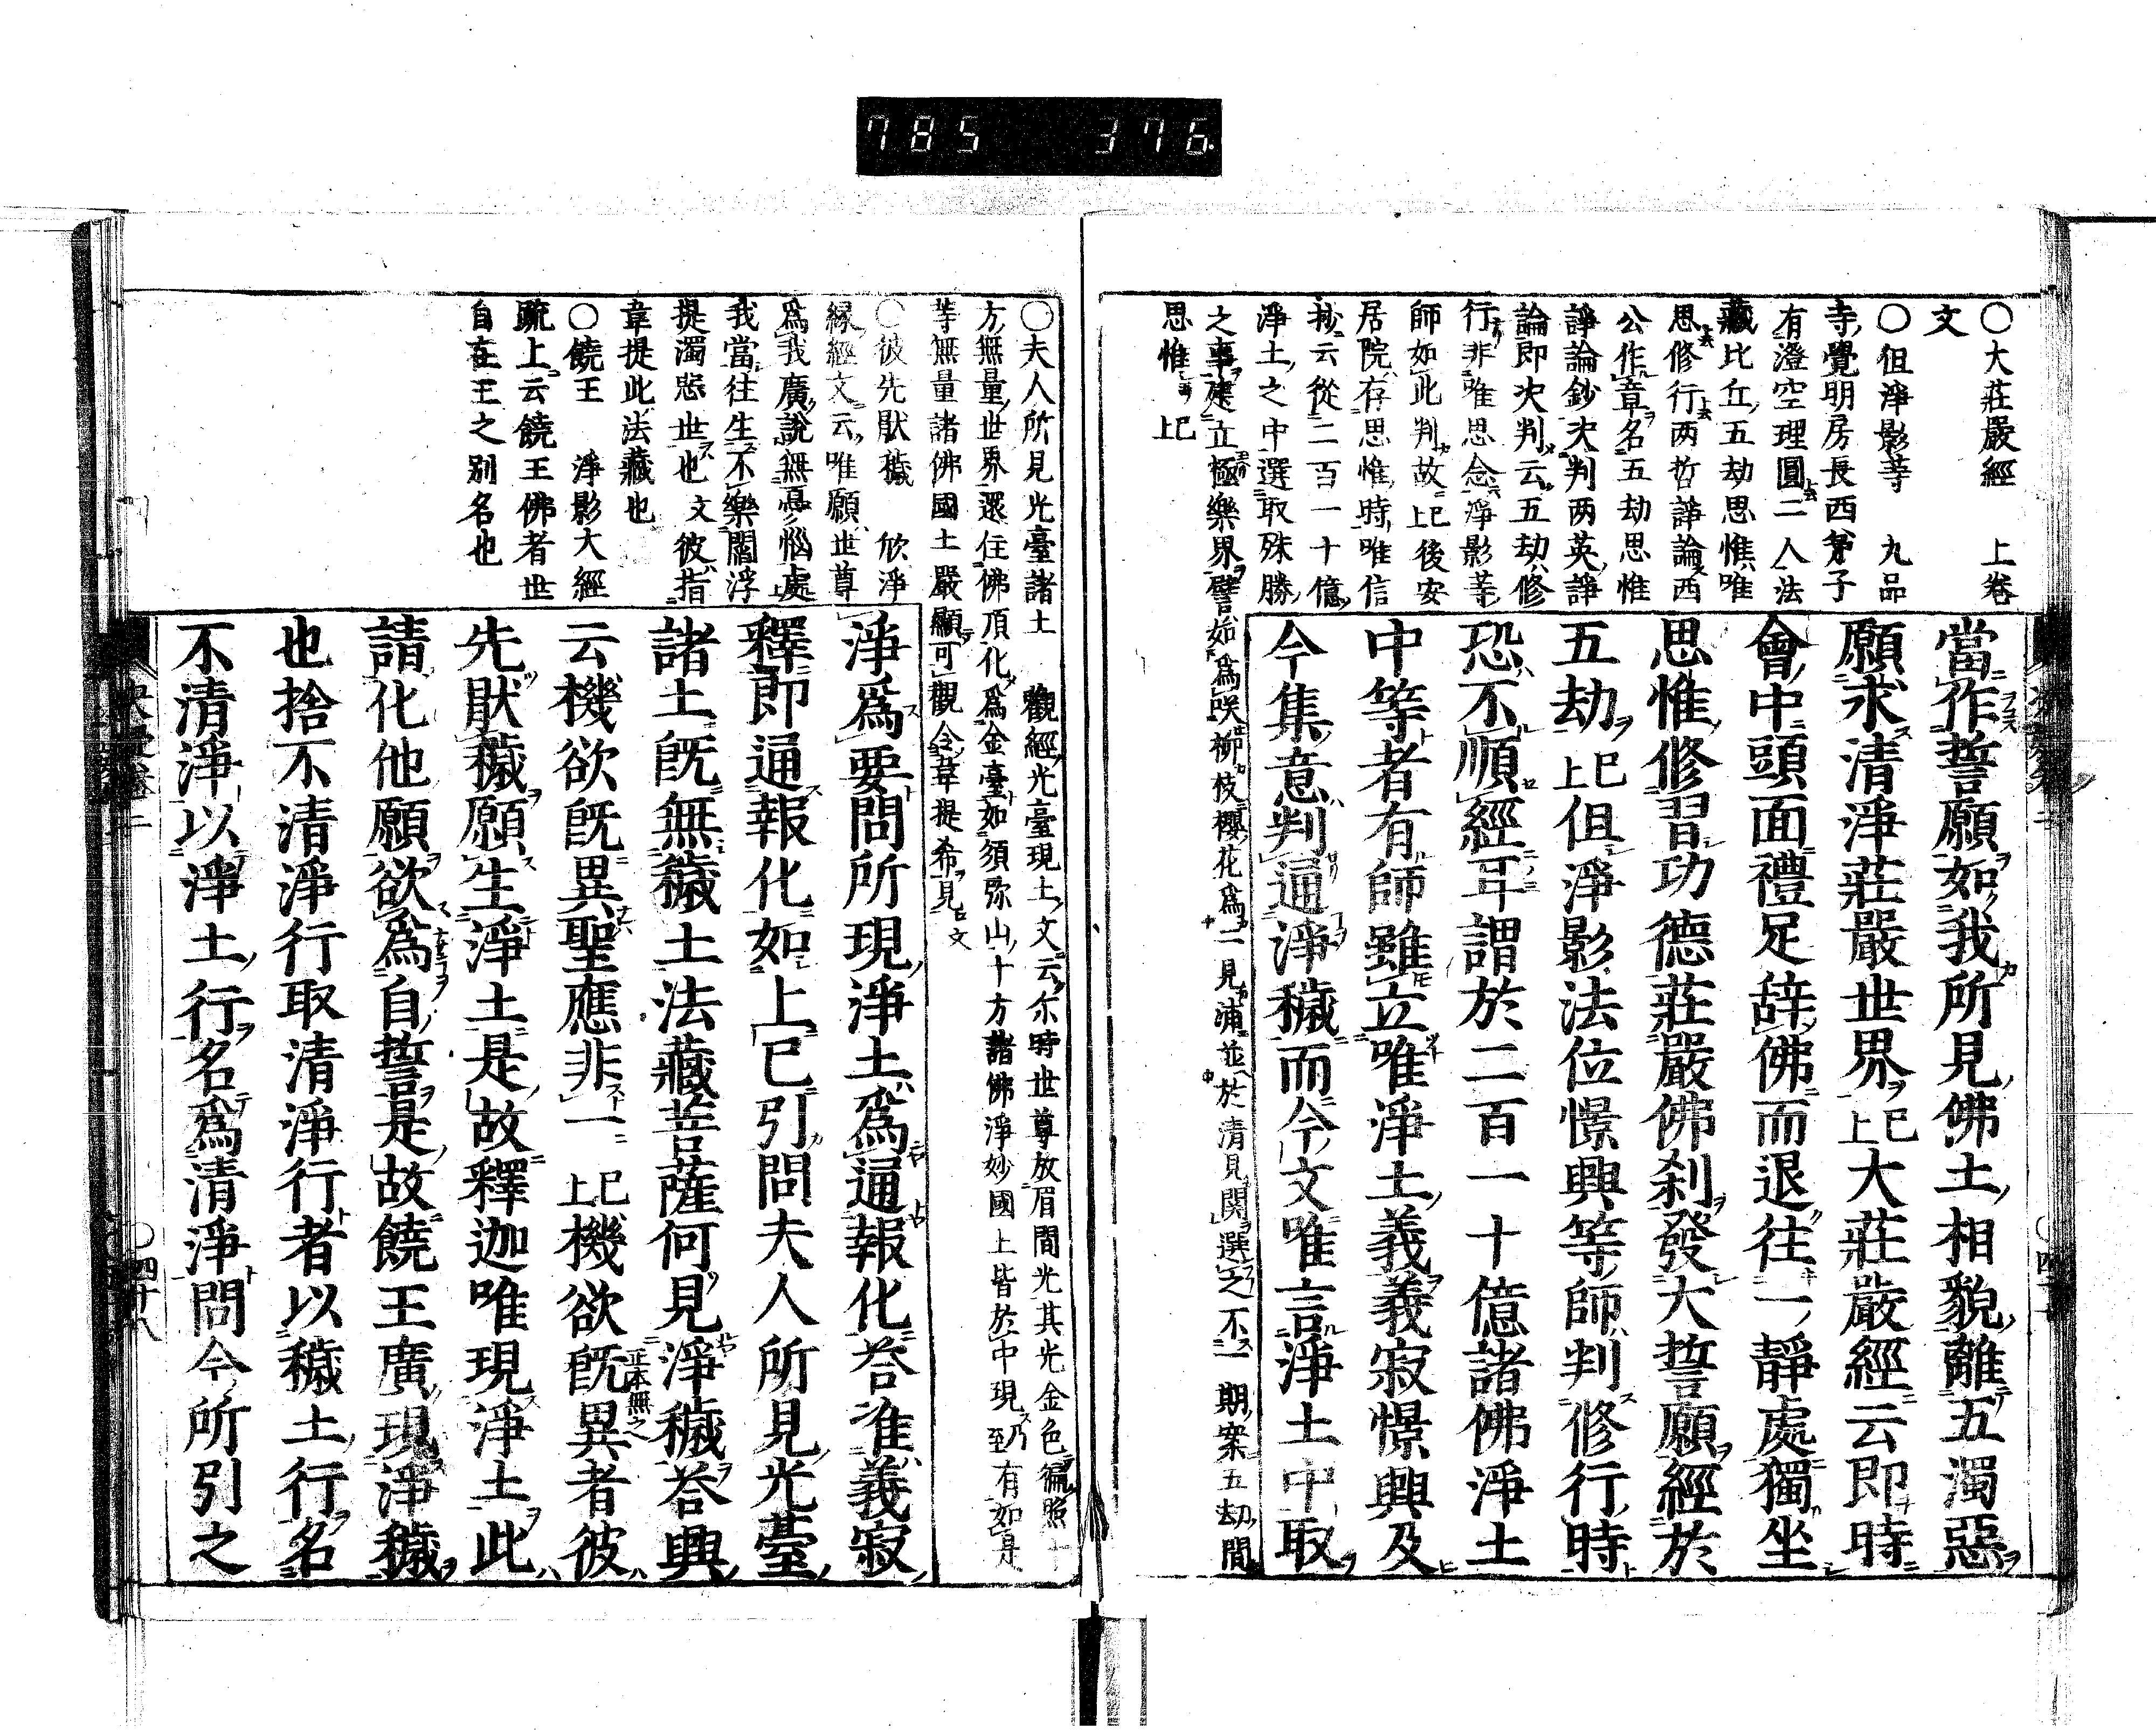 785 376
○大莊嚴經 上卷
文
○但淨影等 九品
寺覺明房長西弟子
有澄空理圓二人法
藏比丘五劫思惟唯
思修行两哲諍論西
公作章名五劫思惟
諍論鈔决判两英諍
論即决判云五劫修
行非唯思念淨影等
師如此判故上巳後安
居院存思惟時唯信
抄云從二百一十億
淨土之中選取殊勝
之事建立極樂界譬如爲咲柳枝櫻花爲二見浦並於清見関選之不一期案五劫間
思惟上巳
當作誓願如我所見佛土相貌離五濁惡
願求清淨莊嚴世界上巳大莊嚴經云即時
會中頭面禮足辞佛而退往一靜處獨坐
思惟修習功德莊嚴佛刹發大誓願經於
五劫上巳但淨影法位憬興等師判修行時
恐不順經耳謂於二百一十億諸佛淨土
中等者有師雖立唯淨土義義寂憬興及
今集意判通淨穢而今文唯言淨土中取
○夫人所見光臺諸土 觀經光臺現土文云尓時世尊放眉間光其光金色徧照十
方無量世界還住佛頂化爲金臺如須弥山十方諸佛淨妙國土皆於中現乃至有如是
等無量諸佛國土嚴顯可觀令韋提希見上巳文
○彼先猒穢 欣淨
縁經文云唯願世尊
爲我廣說無憂惱處
我當往生不樂閻浮
提濁惡世也文彼指
韋提此法藏也
○饒王 淨影大經
疏上云饒王佛者世
自在王之别名也
淨爲要問所現淨土爲通報化荅准義寂
釋即通報化如上已引問夫人所見光臺
諸土旣無穢土法藏菩薩何見淨穢荅興
云機欲旣異聖應非一上巳機欲旣異者彼
正本無之
先猒穢願生淨土是故釋迦唯現淨土此
請化他願欲爲自誓是故饒王廣現淨穢
也捨不清淨行取清淨行者以穢土行名
不清淨以淨土行名爲清淨問今所引之
○四十八